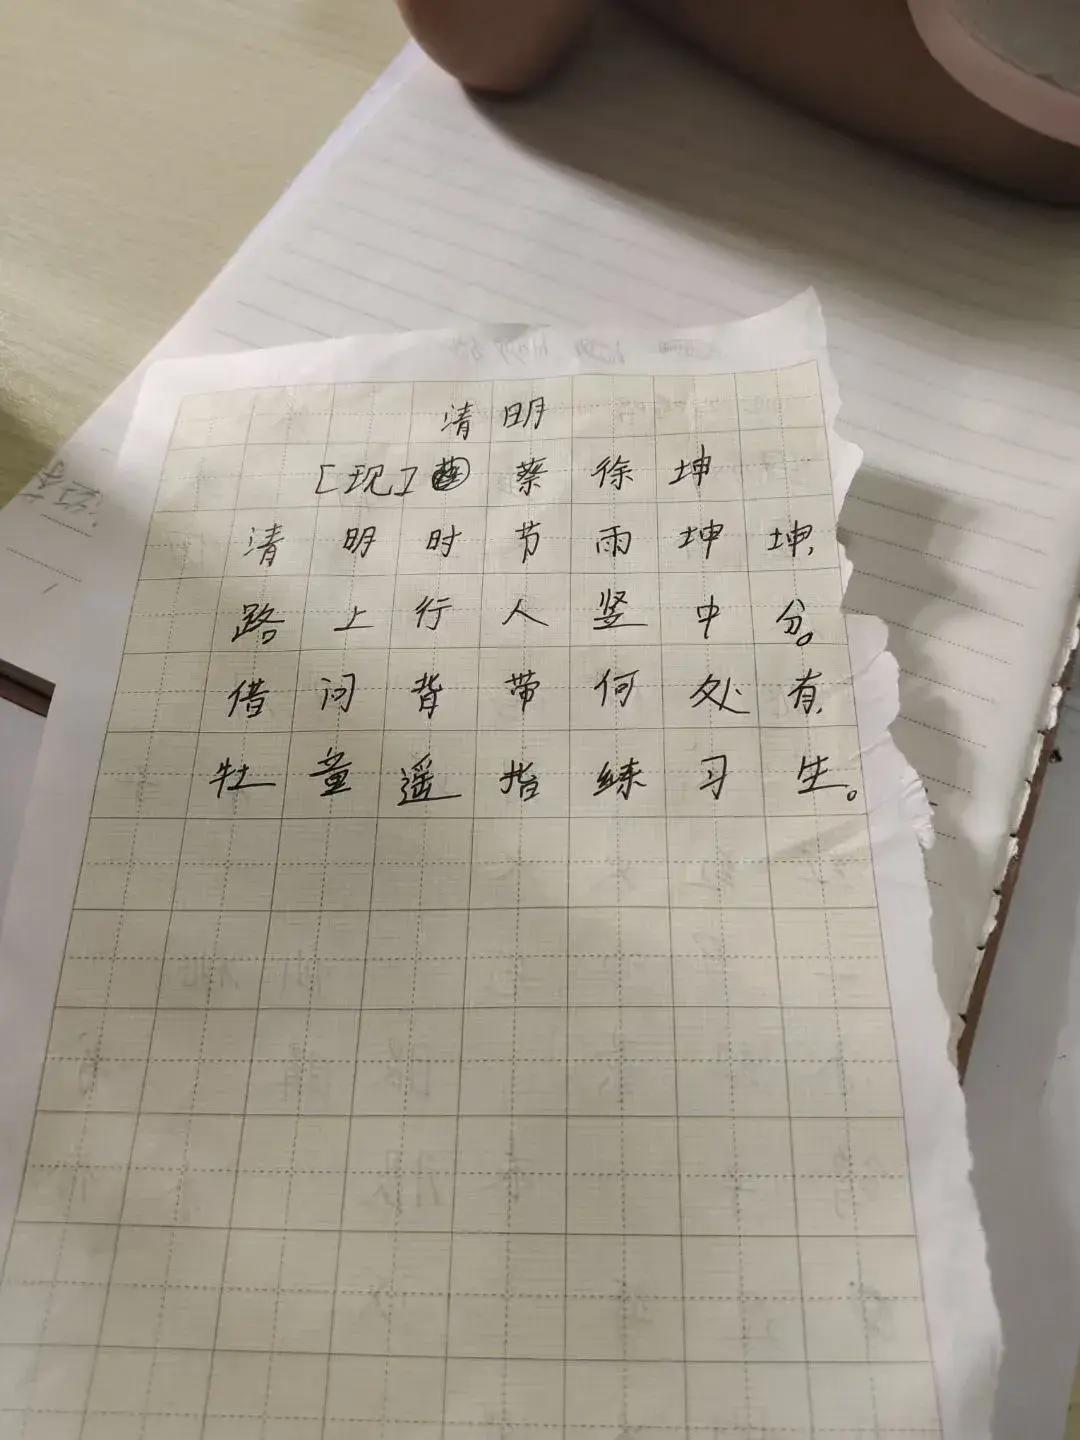 清明
[现] 蔡徐坤
清明时节雨坤坤,
路上行人竖中分。
借问背带何处有,
牡童遥指练习生。